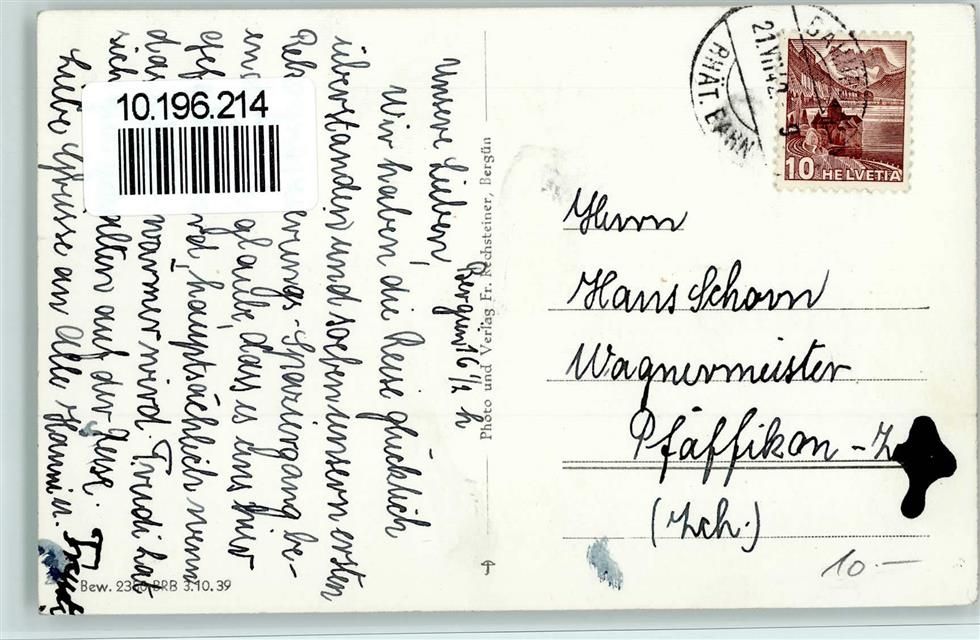 10.196.214
Bergün 16 1/2 h
Unsere Lieben,
Wir haben die Reise glücklich
überstanden und soeben unsern ersten
Rek erungs-Spaziergang be-
en glaube, dass es uns hier
gef rd, hauptsächlich wenn
da warmer wird. Trudi hat
sich alten auf der Reise.
Liebe Grüsse an Alle Hanni u.
Trudi
Photo und Verlag Fr. Rechsteiner, Bergün
Bew. 2350 BRB 3.10.39
RHÄT. BAHN
21.VII.42
10 HELVETIA
Herrn
Hans Schorn
Wagnermeister
Pfäffikon-Z
(Zch.)
10.—